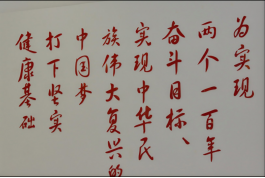 为实现
两个一百年
奋斗目标、
实现中华民
族伟大复兴的
中国梦
打下坚实
健康基础